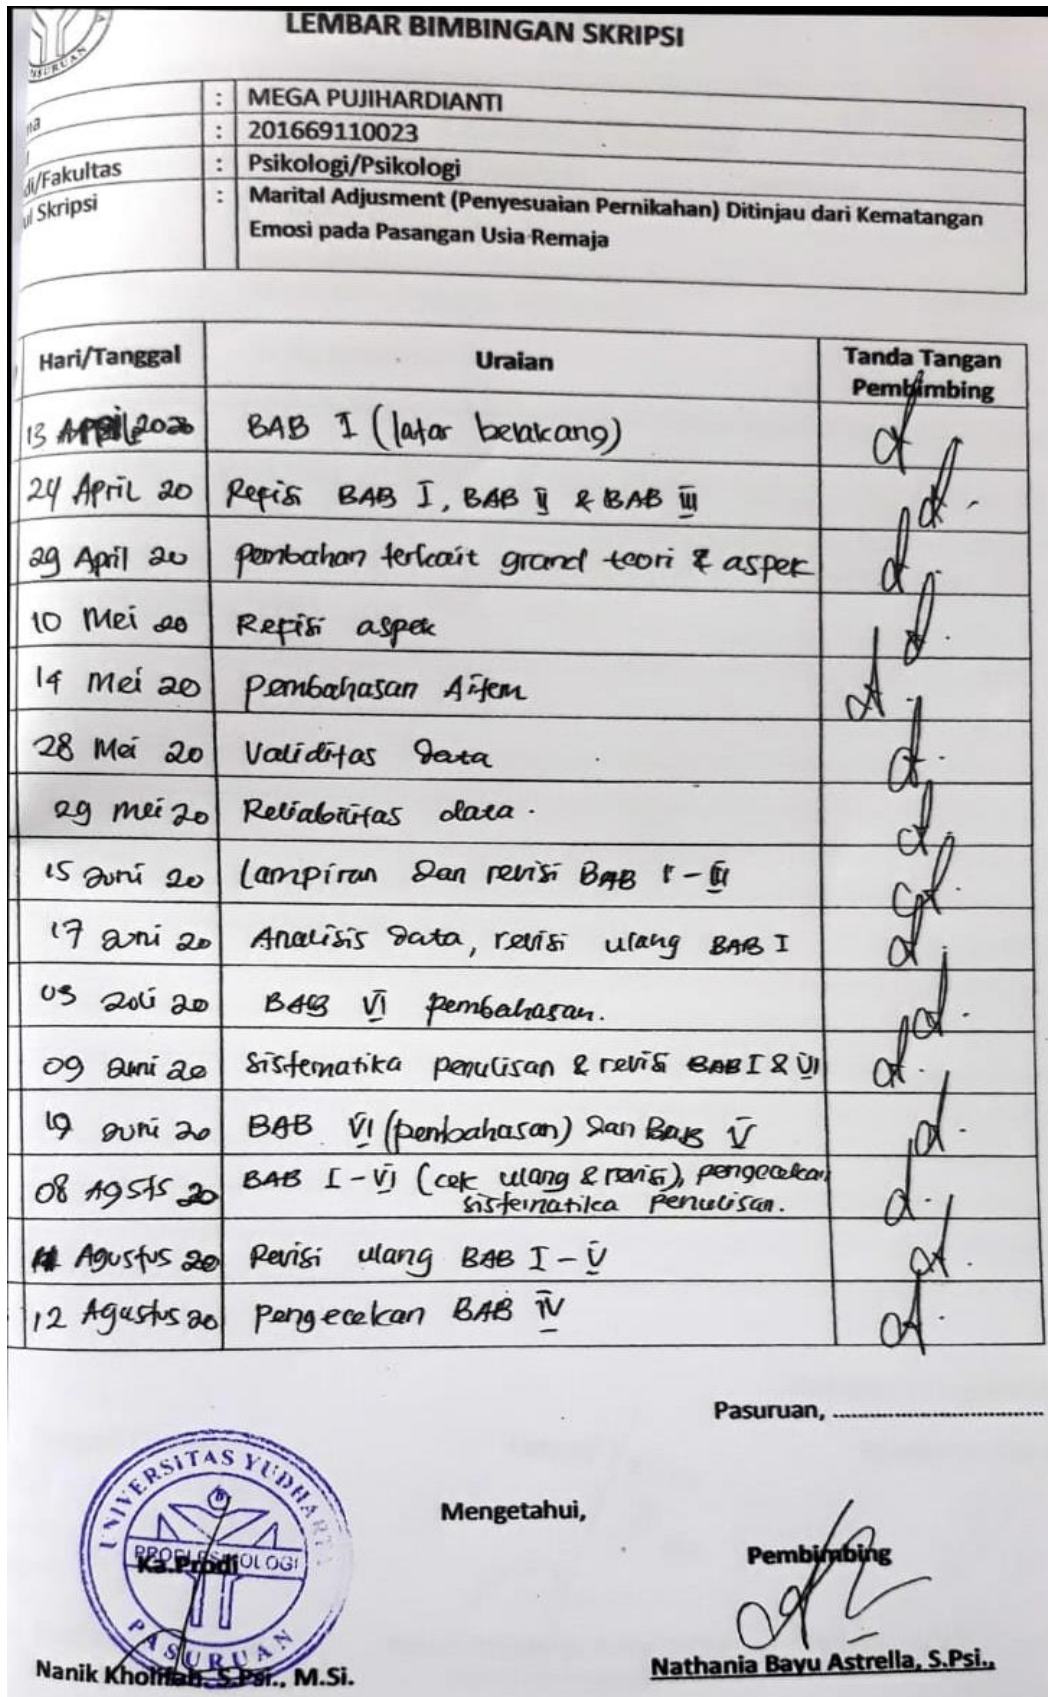 LEMBAR BIMBINGAN SKRIPSI
: MEGA PUJIHARDIANTI
: 201669110023
di/Fakultas : Psikologi/Psikologi
ul Skripsi : Marital Adjusment (Penyesuaian Pernikahan) Ditinjau dari Kematangan
Emosi pada Pasangan Usia Remaja
Hari/Tanggal Uraian Tanda Tangan
Pembimbing
13 April 2020 BAB I (latar belakang)
24 April 20 Refisi BAB I, BAB II & BAB III
29 April 20 pembahan terkait grand teori & aspek
10 Mei 20 Refisi aspek
14 Mei 20 Pembahasan Aitem
28 Mei 20 Validitas data
29 mei 20 Reliabilitas data.
15 Juni 20 Lampiran dan revisi BAB I - III
17 Juni 20 Analisis data, revisi ulang BAB I
03 Juli 20 BAB VI pembahasan.
09 Juni 20 Sistematika penulisan & revisi BAB I & VI
19 Juni 20 BAB VI (pembahasan) dan Bab V
08 Agsts 20 BAB I - VI (cek ulang & revisi), pengecekan
sistematika penulisan.
Agustus 20 Revisi ulang BAB I - V
12 Agustus 20 Pengecekan BAB IV
Pasuruan, ....................................
Mengetahui,
UNIVERSITAS YUDHARTA
PRODI PSIKOLOGI
PASURUAN
Ka.Prodi
Pembimbing
Nanik Kholifah, S.Psi., M.Si.
Nathania Bayu Astrella, S.Psi.,